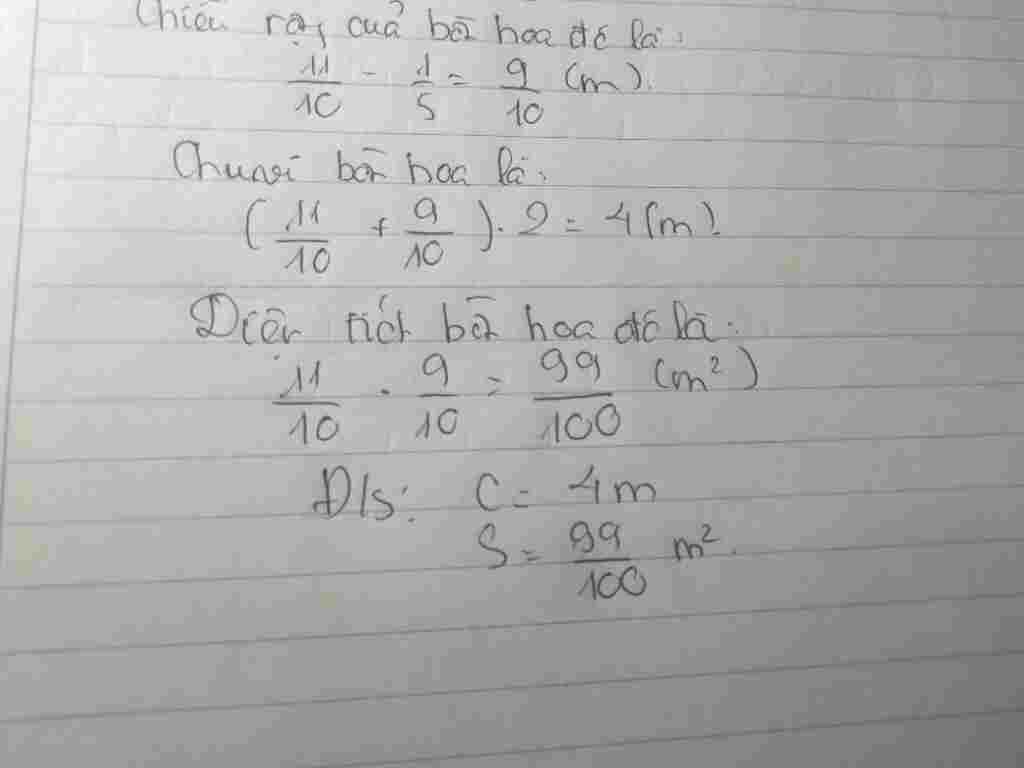 Chiều rộng của bồn hoa đó là:
11/10 - 1/5 = 9/10 (m).
Chu vi bồn hoa là:
(11/10 + 9/10) . 2 = 4 (m).
Diện tích bồn hoa đó là:
11/10 . 9/10 = 99/100 (m²)
Đ/s: C = 4m
S = 99/100 m².